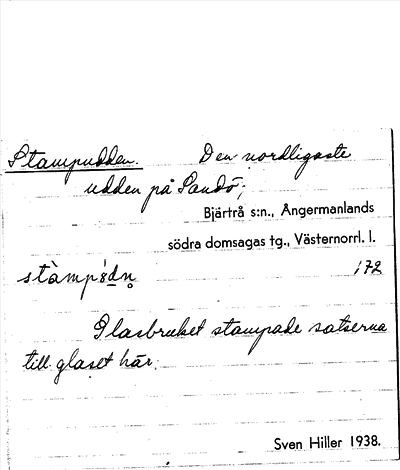 Stampudden. Den nordligaste
udden på Sandö;
Bjärtrå s:n., Ångermanlands
södra domsagas tg., Västernorrl. l.
172
Glasbruket stampade satserna
till glaset här.
Sven Hiller 1938.